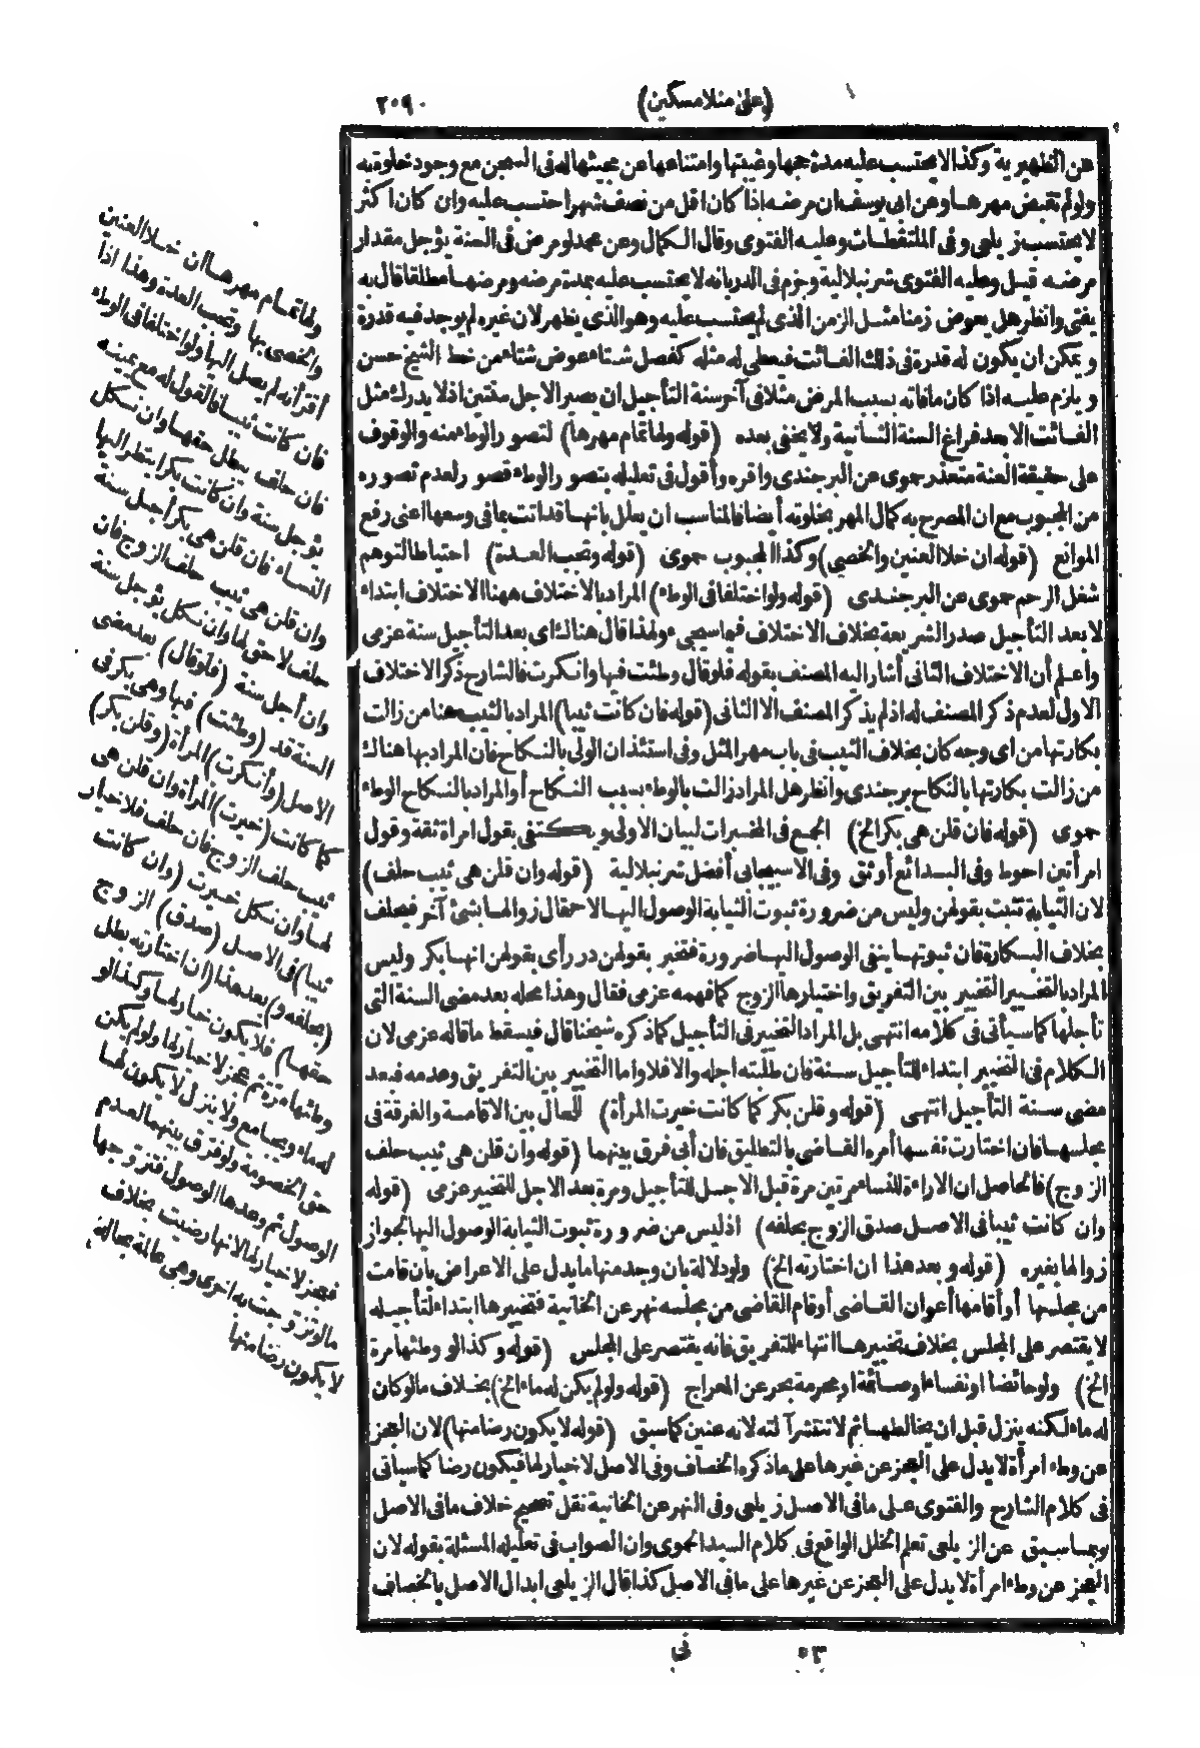 (على منلا مسكين)
٢٠٩
عن الظهيرية وكذا لا يحتسب عليه مدة حجها وغيبتها وامتناعها عن مجيئها له فى السجن مع وجود خلوة به
ولو لم تقبض مهرها وعن ابى يوسف ان مرضه اذا كان اقل من نصف شهر احتسب عليه وان كان اكثر
لا يحتسب زيلعى وفى الملتقطات وعليه الفتوى وقال الكمال وعن محمد لو مرض فى العنة يؤجل مقدار
مرضه قيل وعليه الفتوى شرنبلالية وجزم فى الدر بانه لا يحتسب عليه بمدة مرضه ومرضها مطلقا قال به
يفتى وانظر هل يعوض زمنا مثل الزمن الذى لم يحتسب عليه وهو الذى يظهر لان غيره لم يوجد فيه قدرة
ويمكن ان يكون له قدرة فى ذلك الفائت فيعطى له مثله كفصل شتاء عوض شتاء من خط الشيخ حسن
ويلزم عليه اذا كان ما فاته بسبب المرض مثلا فى آخر سنة التأجيل ان يصير الاجل سنتين اذ لا يدرك مثل
الفائت الا بعد فراغ السنة الثانية ولا يخفى بعده (قوله ولها تمام مهرها) لتصور الوطء منه والوقوف
على حقيقة العنة متعذر حموى عن البرجندى واقره وأقول فى تعليله بتصور الوطء قصور لعدم تصوره
من المجبوب مع ان المصرح به كمال المهر بخلوته أيضا فالمناسب ان يعلل بانها قد اتت بما فى وسعها اعنى رفع
الموانع (قوله ان خلا العنين والخصى) وكذا المجبوب حموى (قوله وتجب العدة) احتياطا لتوهم
شغل الرحم حموى عن البرجندى (قوله ولو اختلفا فى الوطء) المراد بالاختلاف ههنا الاختلاف ابتداء
لا بعد التأجيل صدر الشريعة بخلاف الاختلاف فيما سيجىء ولهذا قال هناك اى بعد التأجيل سنة عزمى
واعلم أن الاختلاف الثانى أشار اليه المصنف بقوله فلو قال وطئت فيها وانكرت فالشارح ذكر الاختلاف
الاول لعدم ذكر المصنف له اذ لم يذكر المصنف الا الثانى (قوله فان كانت ثيبا) المراد بالثيب هنا من زالت
بكارتها من اى وجه كان بخلاف الثيب فى باب مهر المثل وفى استئذان الولى بالنكاح فان المراد بها هناك
من زالت بكارتها بالنكاح برجندى وانظر هل المراد زالت بالوطء بسبب النكاح أو المراد بالنكاح الوطء
حموى (قوله فان قلن هى بكر الخ) الجمع فى المخبرات لبيان الاولى ويكتفى بقول امرأة ثقة وقول
امرأتين احوط وفى البدائع أوثق وفى الاسبيجابى أفضل شرنبلالية (قوله وان قلن هى ثيب حلف)
لان الثيابة تثبت بقولهن وليس من ضرورة ثبوت الثيابة الوصول اليها لاحتمال زوالها بشئ آخر فيحلف
بخلاف البكارة فان ثبوتها ينفى الوصول اليها ضرورة فتخير بقولهن درر أى بقولهن انها بكر وليس
المراد بالتخيير التخيير بين التفريق واختيارها الزوج كما فهمه عزمى فقال وهذا محله بعد مضى السنة التى
تأجلها كما سيأتى فى كلامه انتهى بل المراد التخيير فى التأجيل كما ذكره شيخنا قال فيسقط ما قاله عزمى لان
الكلام فى التخيير ابتداء للتأجيل سنة فان طلبته اجله والا فلا واما التخيير بين التفريق وعدمه فبعد
مضى سنة التأجيل انتهى (قوله وقلن بكر كما كانت خيرت المرأة) للحال بين الاقامة والفرقة فى
مجلسها فان اختارت نفسها أمره القاضى بالتطليق فان أبى فرق بينهما (قوله وان قلن هى ثيب حلف
الزوج) فالحاصل ان الاراءة للنساء مرتين مرة قبل الاجل للتأجيل ومرة بعد الاجل للتخيير عزمى (قوله
وان كانت ثيبا فى الاصل صدق الزوج بحلفه) اذ ليس من ضرورة ثبوت الثيابة الوصول اليها لجواز
زوالها بغيره (قوله وبعد هذا ان اختارته الخ) ولو دلالة بان وجد منها ما يدل على الاعراض بان قامت
من مجلسها أو أقامها أعوان القاضى أو قام القاضى من مجلسه نهر عن الخانية فتخييرها ابتداء لتأجيله
لا يقتصر على المجلس بخلاف تخييرها انتهاء للتفريق فانه يقتصر على المجلس (قوله وكذا لو وطئها مرة
الخ) ولو حائضا او نفساء او صائمة او محرمة بحر عن المعراج (قوله ولو لم يكن له ماء الخ) بخلاف ما لو كان
له ماء لكنه ينزل قبل ان يخالطها ثم لا تنتشر آلته لانه عنين كما سبق (قوله لا يكون رضا منها) لان العجز
عن وطء امرأة لا يدل على العجز عن غيرها على ما ذكره الخصاف وفى الاصل لا خيار لها فيكون رضا كما سيأتى
فى كلام الشارح والفتوى على ما فى الاصل زيلعى وفى النهر عن الخانية نقل تصحيح خلاف ما فى الاصل
وبما سبق عن الزيلعى تعلم الخلل الواقع فى كلام السيد الحموى وان الصواب فى تعليله المسئلة بقوله لان
العجز عن وطء امرأة لا يدل على العجز عن غيرها على ما فى الاصل كذا قال الزيلعى ابدال الاصل بالخصاف
ولها تمام مهرها ان خلا العنين
والخصى بها وتجب العدة وهذا اذا
أقر أنه لم يصل اليها ولو اختلفا فى الوطء
فان كانت ثيبا فالقول له مع يمينه
فان حلف بطل حقها وان نكل
يؤجل سنة وان كانت بكرا ينظر اليها
النساء فان قلن هى بكر أجل سنة
وان قلن هى ثيب حلف الزوج فان
حلف لا حق لها وان نكل يؤجل سنة
وان أجل سنة (فلو قال) بعد مضى
السنة قد (وطئت) فيها وهى بكر فى
الاصل (وأنكرت) المرأة (وقلن بكر)
كما كانت (خيرت) المرأة وان قلن هى
ثيب حلف الزوج فان حلف فلا خيار
لها وان نكل خيرت (وان كانت
ثيبا) فى الاصل (صدق) الزوج
(بحلفه و) بعد هذا (ان اختارته بطل
حقها) فلا يكون خيار لها وكذا لو
وطئها مرة ثم عجز لا خيار لها ولو لم يكن
له ماء ويجامع ولا ينزل لا يكون لها
حق الخصومة ولو فرق بينهما لعدم
الوصول ثم وعدها الوصول فتزوجها
فعجز لا خيار لها لانها رضيت بخلاف
ما لو تزوجت به اخرى وهى عالمة بحاله
لا يكون رضا منها
٥٣
نى